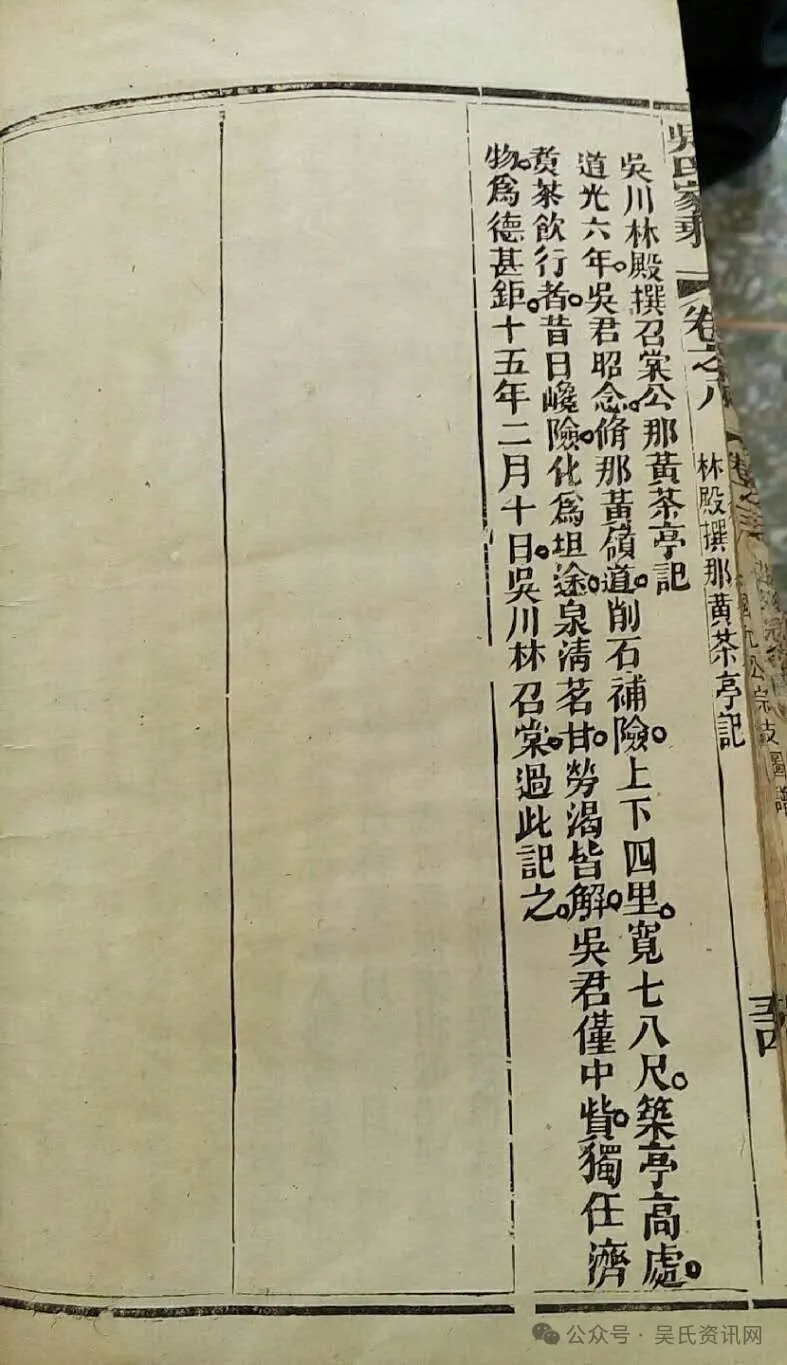 吳氏家乘
卷之八
林殿撰那黃茶亭記
三四
吳川林殿撰召棠公那黃茶亭記
道光六年。吳君昭念。脩那黃嶺道。削石補險。上下四里。寬七八尺。築亭高處。
煑茶飲行者。昔日巉險。化爲坦途。泉清茗甘。勞渴皆解。吳君僅中貲。獨任濟
物。爲德甚鉅。十五年二月十日。吳川林召棠。過此記之。
公众号·吴氏资讯网